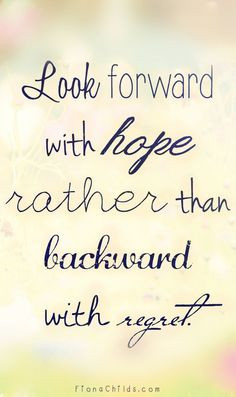 Look forward
with hope
rather than
backward
with regret.
FionaChilds.com